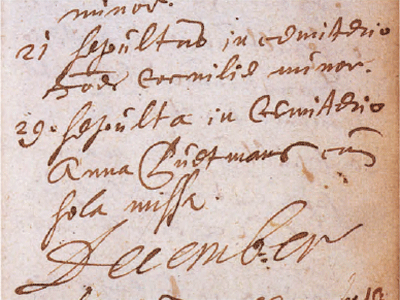 minor.
21 sepultus in cemiterio
minor.
29. sepulta in Cemiterio
Anna Guetmans cum
sola missa.
December